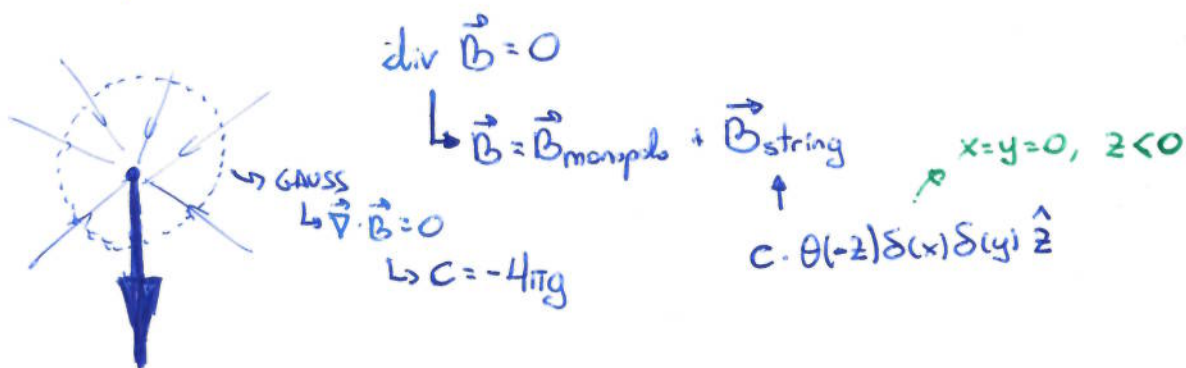 div B⃗ = 0
↳ B⃗ = B⃗monopolo + B⃗string
x=y=0, z<0
↳ GAUSS
↳ ∇⃗·B⃗=0
C·θ(-z)δ(x)δ(y) ẑ
↳ C=-4πg